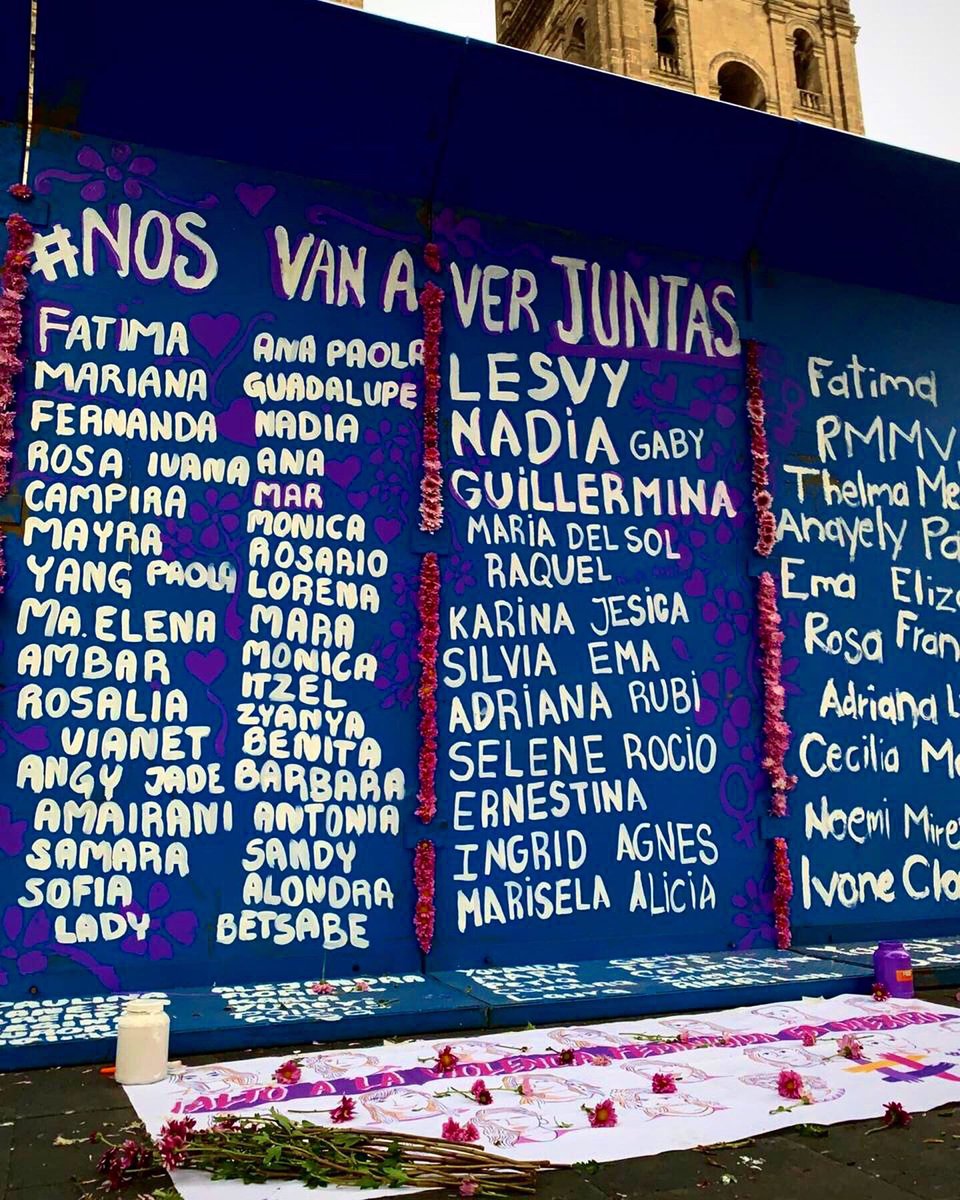 #NOS VAN A VER JUNTAS
FATIMA
MARIANA
FERNANDA
ROSA IVANA
CAMPIRA
MAYRA
YANG PAOLA
MA. ELENA
AMBAR
ROSALIA
VIANET
ANGY JADE
AMAIRANI
SAMARA
SOFIA
LADY
ANA PAOLA
GUADALUPE
NADIA
ANA
MAR
MONICA
ROSARIO
LORENA
MARA
MONICA
ITZEL
ZYANYA
BENITA
BARBARA
ANTONIA
SANDY
ALONDRA
BETSABE
LESVY
NADIA GABY
GUILLERMINA
MARIA DEL SOL
RAQUEL
KARINA JESICA
SILVIA EMA
ADRIANA RUBI
SELENE ROCIO
ERNESTINA
INGRID AGNES
MARISELA ALICIA
Fatima
RMMV
Thelma Me
Anayely Pa
Ema Eliz
Rosa Fran
Adriana L
Cecilia M
Noemi Mire
Ivone Cla
¡ALTO A LA VIOLENCIA FEMINICIDA